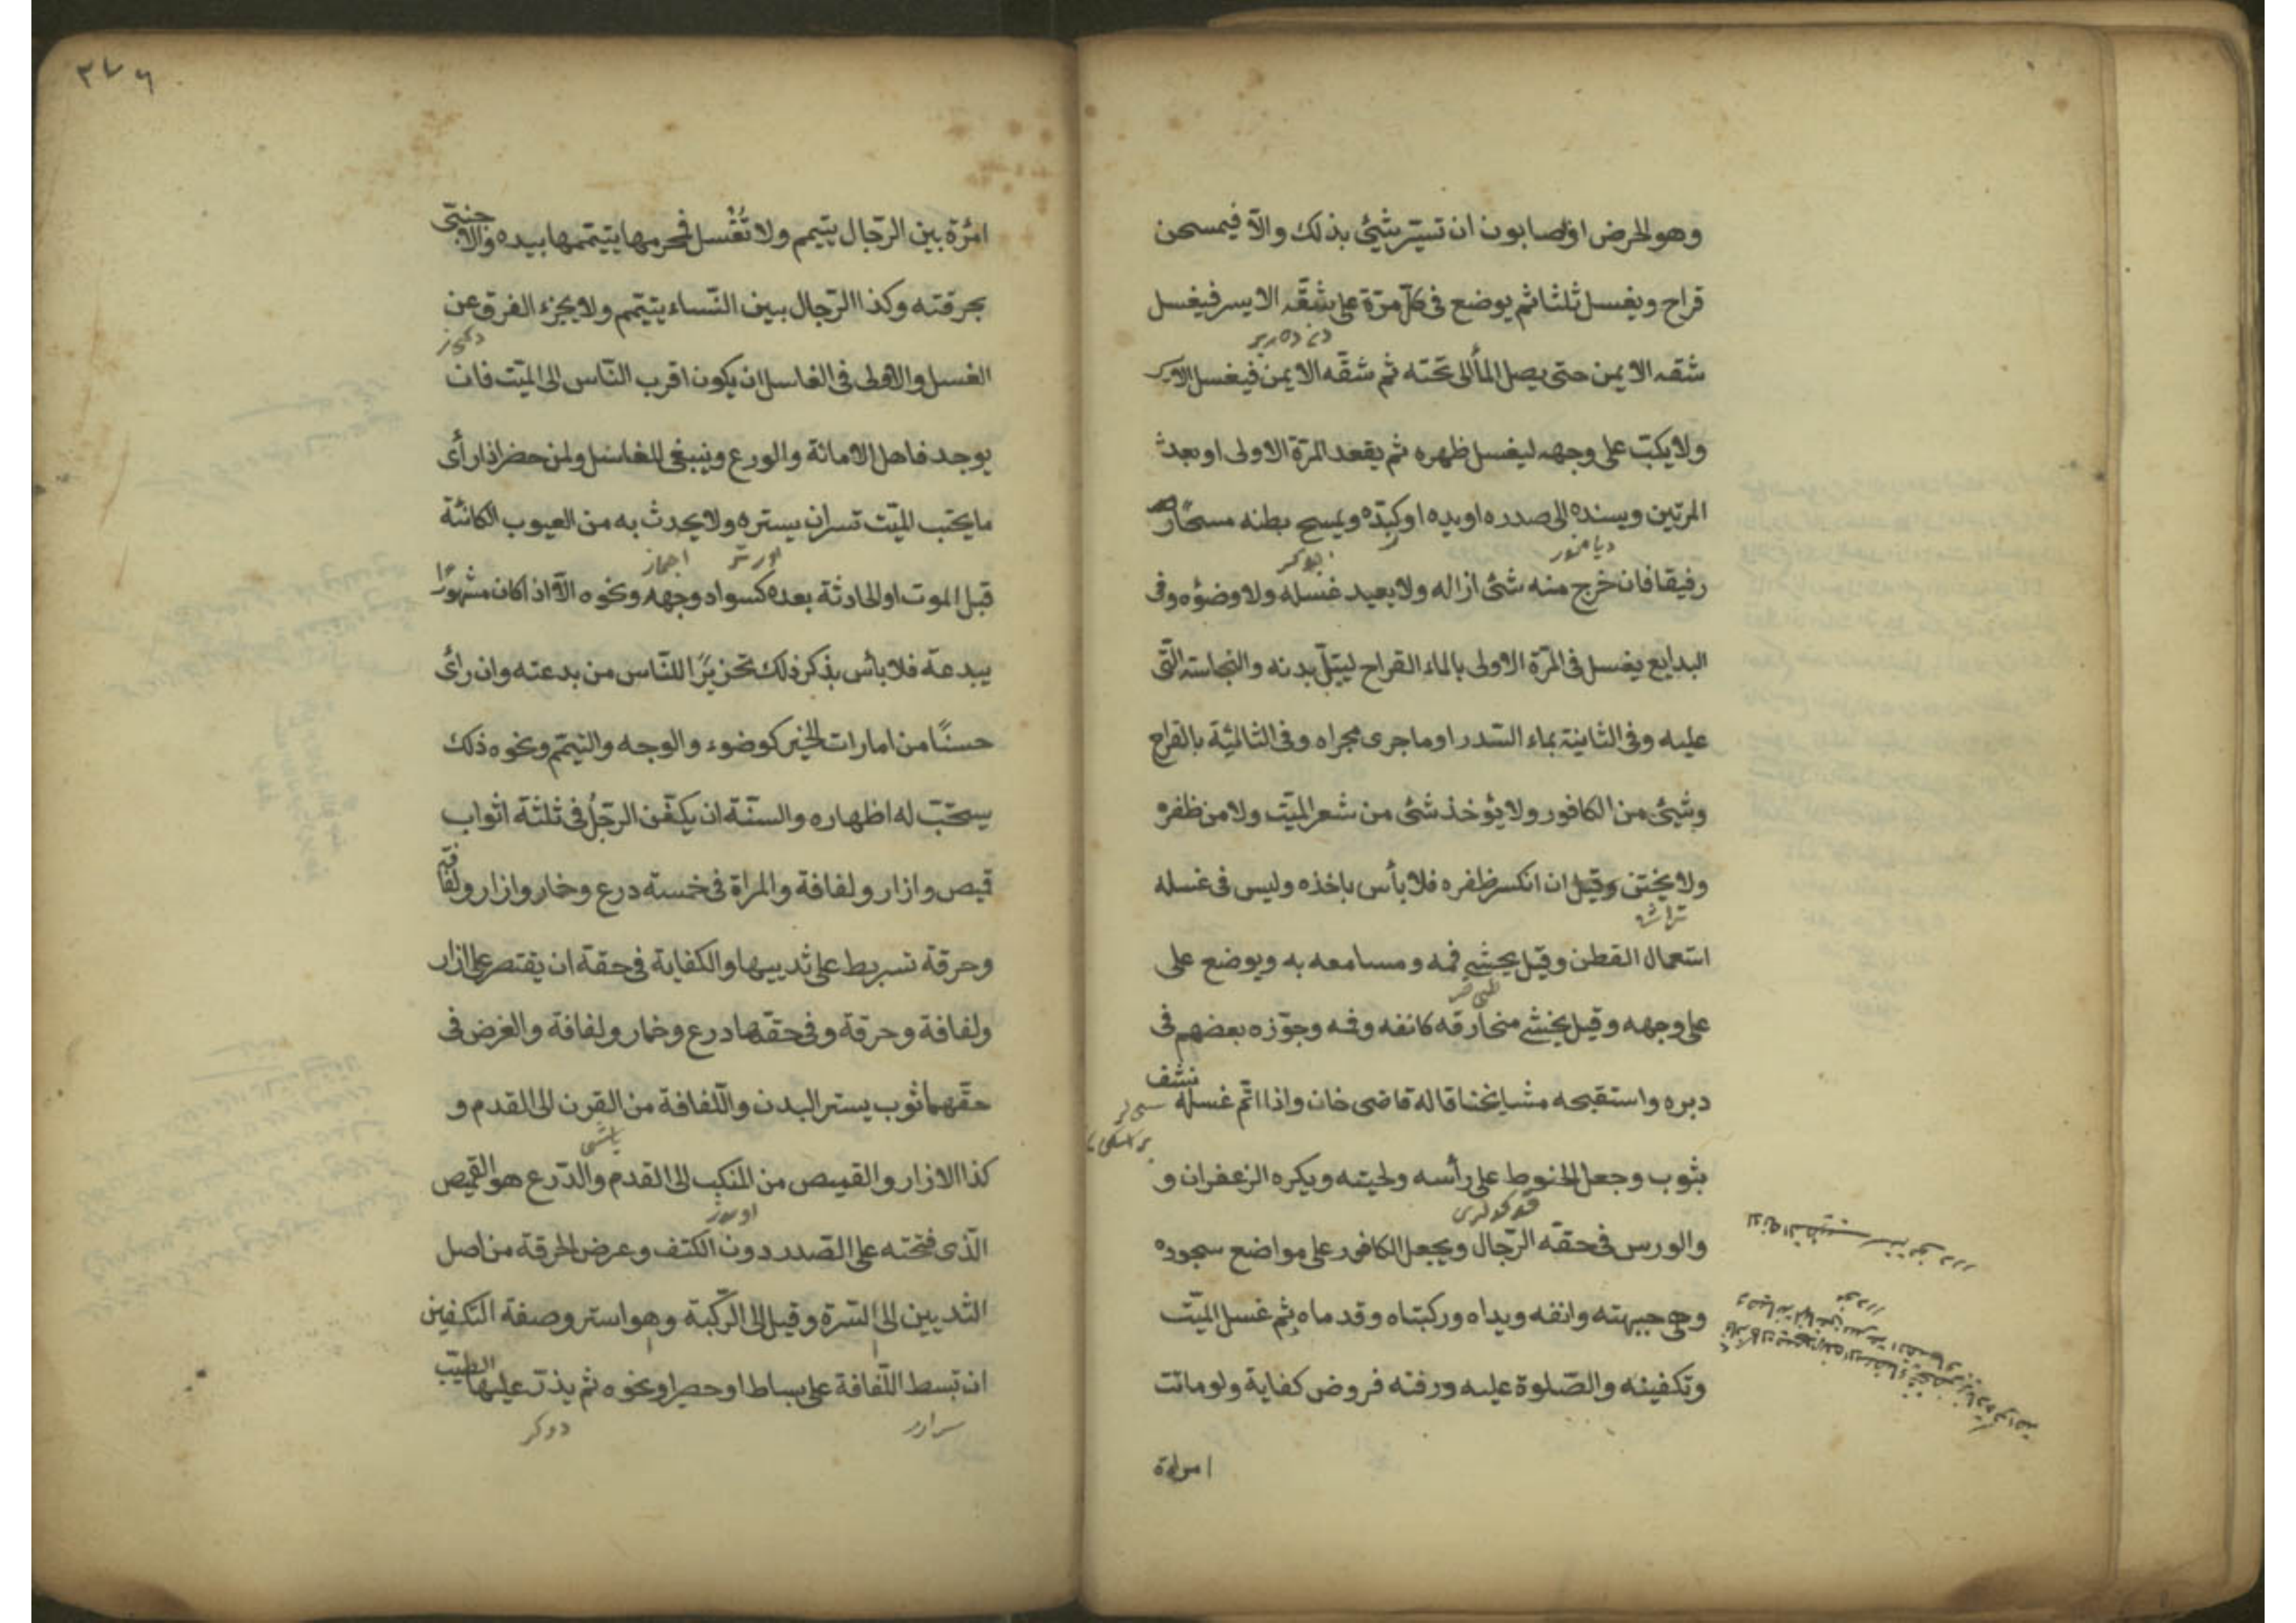 وهو الحرض او الصابون ان تيسّر شئ بذلك والّا فيمسحن
قراح ويغسل ثلثا ثم يوضع فى كلّ مرّة على شقّه الايسر فيغسل
شقه الايمن حتى يصل الماء الى تحته ثم شقّه الايمن فيغسل الايسر
ولا يكبّ على وجهه ليغسل ظهره ثم يقعد المرّة الاولى او بعد
المرتين ويسنده الى صدره او يده او ركبته ويمسح بطنه مسحًا
رفيقا فان خرج منه شئ ازاله ولا يعيد غسله ولا وضؤه وفى
البدايع يغسل فى المرّة الاولى بالماء القراح ليبتلّ بدنه والنجاسة التى
عليه وفى الثانية بماء السّدر او ما جرى مجراه وفى الثالثة بالقراح
وشئ من الكافور ولا يؤخذ شئ من شعر الميّت ولا من ظفره
ولا يختن وقيل ان انكسر ظفره فلا بأس باخذه وليس فى غسله
استعمال القطن وقيل يحشى فمه ومسامعه به ويوضع على
على وجهه وقيل يحشى منخارقه كانفه وفمه وجوّزه بعضهم فى
دبره واستقبحه مشايخنا قاله قاضى خان واذا اتمّ غسله نشف
بثوب وجعل الحنوط على رأسه ولحيته ويكره الزعفران و
والورس فى حقه الرّجال ويجعل الكافور على مواضع سجوده
وهى جبهته وانفه ويداه وركبتاه وقدماه ثم غسل الميّت
وتكفينه والصّلوة عليه ودفنه فروض كفاية ولو ماتت
امراة
٢٧٦
امرٔة بين الرّجال يتيمم ولا تغسل فمحرمها يتيممها بيده والاجنبى
بحرقته وكذا الرّجال بين النّساء يتيمم ولا يجزء الغرق عن
الغسل والاولى فى الغاسل ان يكون اقرب النّاس الى الميّت فان
يوجد فاهل الامانة والورع وينبغى للغاسل ولمن حضر اذا رأى
ما يحتب للميّت تسران يستره ولا يحدث به من العيوب الكائنة
قبل الموت او الحادثة بعده كسواد وجهه ونحوه الّا اذا كان مشهورًا
ببدعة فلا بأس بذكر ذلك تحزيرًا للنّاس من بدعته وان رأى
حسنًا من امارات الخير كوضوء والوجه والتيمّم ونحوه ذلك
يستحبّ له اظهاره والسنّة ان يكفّن الرّجل فى ثلثة اثواب
قميص وازار ولفافة والمراة فى خمسته درع وخمار وازار ولفافة
وحرقة تسربط على ثدييها والكفاية فى حقه ان يقتصر على ازار
ولفافة وحرقة وفى حقّها درع وخمار ولفافة والغرض فى
حقّهما ثوب يستر البدن واللّفافة من القرن الى القدم و
كذا الازار والقميص من المنكب الى القدم والدّرع هو القميص
الّذى فتحته على الصّدر دون الكتف وعرض الحرقة من اصل
الثديين الى السّرة وقيل الى الرّكبة وهو استر وصفة التكفين
ان تبسط اللّفافة على بساط او حصير او نحوه ثم يذرّ عليها الطيّب